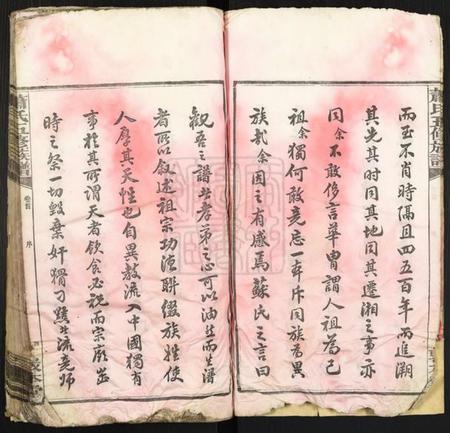 而至不肖時隔且四五百年而追溯
其先其時同其地同其遷湘之事亦
同余不敢侈言華胄謂人祖為己
祖余獨何敢竟忘一本斥同族為異
族哉余因之有感焉蘇氏之言曰
觀吾之譜者孝弟之心可以油然而生譜
者所以敘述祖宗功德聯綴族姓使
人厚其天性也自異教流入中國獨有
事於其所謂天者飲食必祝而宗廟歲
時之祭一切毀棄奸猾刁黠之流竟師
蕭氏五修族譜
蕭氏五修族譜
卷首
序